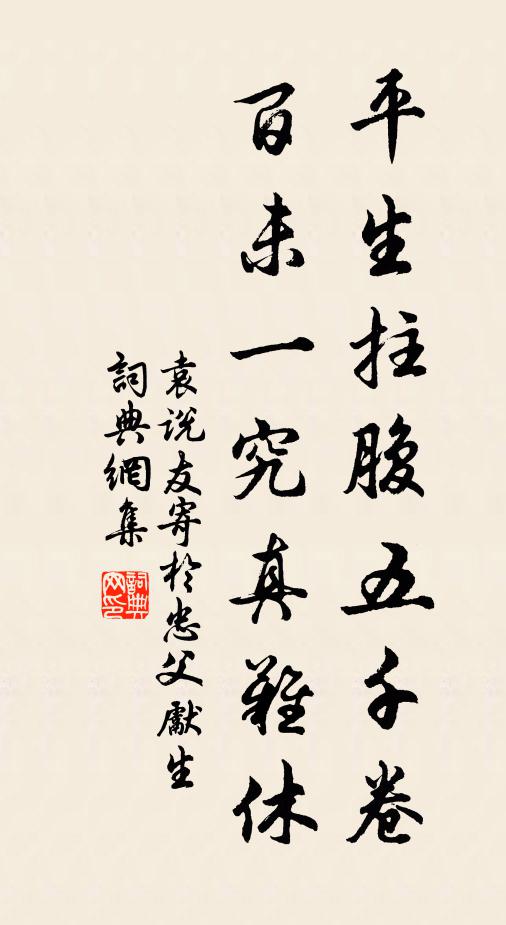 平生拄腹五千卷
百未一究真難休
袁说友寄於忠父獻生
詞典網集
詞典网印